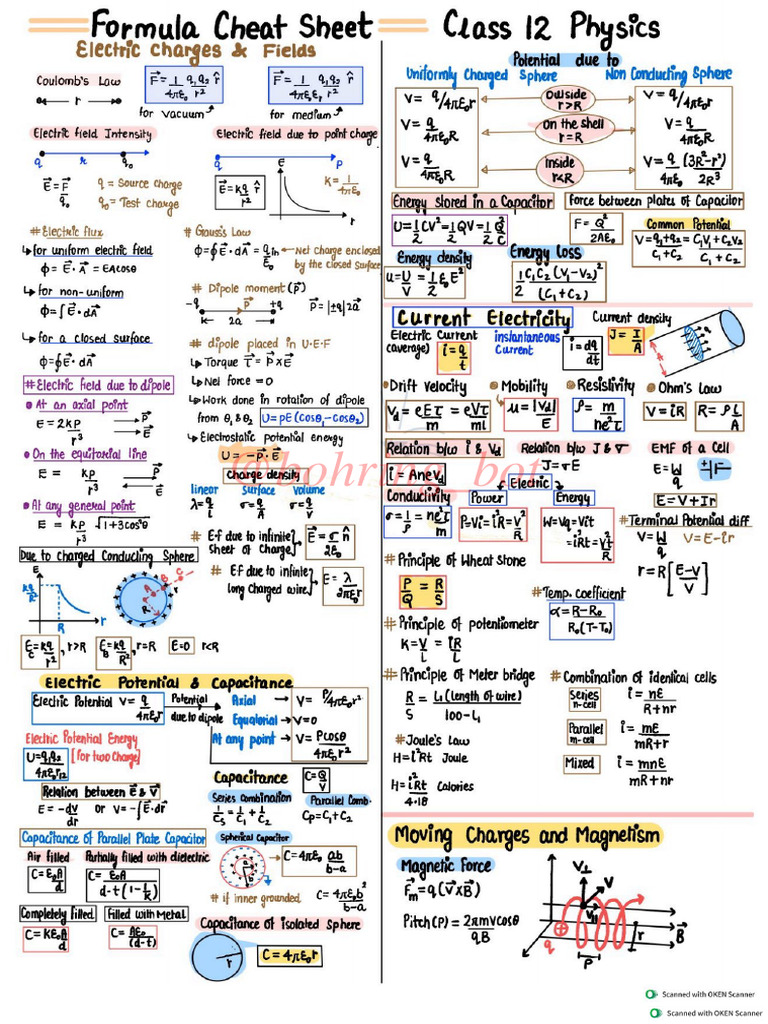 Formula Cheat Sheet
Class 12 Physics
Electric Charges & Fields
Coulomb's Law
r
F = 1/4πε₀ q₁q₂/r² r̂
for vacuum
F = 1/4πε₀εᵣ q₁q₂/r² r̂
for medium
Electric field Intensity
q r q₀
E = F/q₀
q = Source charge
q₀ = Test charge
Electric field due to point charge
q P
E = kq/r² r̂
E
r
K = 1/4πε₀
# Electric flux
↳ for uniform electric field
ϕ = E · A = EAcosθ
↳ for non-uniform
ϕ = ∫E · dA
↳ for a closed surface
ϕ = ∮E · dA
# Gauss's Law
ϕ = ∮E · dA = qin/ε₀
Net charge enclosed
by the closed Surface
# Dipole moment (P)
-q P +q
2a
P = |±q| 2a
# dipole placed in U·E·F
↳ Torque τ = P × E
↳ Net force = 0
↳ Work done in rotation of dipole
from θ₁ & θ₂ U = pE (Cosθ₁ - Cosθ₂)
↳ Electrostatic potential energy
U = -P · E
# Electric field due to dipole
At an axial point
E = 2KP/r³
P
E
On the equitorial line
E = KP/r³
P
E
At any general point
E = KP/r³ √1+3cos²θ
Charge density
linear Surface volume
λ = q/L σ = q/A σ = q/V
# Ef due to infinite
Sheet of Charge
E = σ/2ε₀ n̂
# Ef due to infinite
long Charged wire
E = λ/2πε₀r
Due to Charged Conducting Sphere
E
kq/R²
R
r
A B C
R
E_C = kq/r², r>R
E_B = kq/R², r=R
E=0 r<R
Electric Potential & Capacitance
Electric Potential V = q/4πε₀r
Potential
due to dipole
Axial → V = P/4πε₀r²
Equatorial → V=0
At any point → V = Pcosθ/4πε₀r²
Electric Potential Energy
U = q₁q₂/4πε₀r₁₂
[for two Charge]
Relation between E & V
E = -dV/dr or V = -∫E·dr
Capacitance
C = Q/V
Series combination
1/Cs = 1/C₁ + 1/C₂
Parallel Comb.
Cp = C₁ + C₂
Capacitance of Parallel Plate Capacitor
Air filled
C = ε₀A/d
Partially filled with dielectric
C = ε₀A/d-t(1-1/k)
Completely filled
C = Kε₀A/d
Filled with Metal
C = Aε₀/(d-t)
Spherical Capacitor
a
b
C = 4πε₀ ab/b-a
# if inner grounded
C = 4πε₀b²/b-a
Capacitance of isolated Sphere
r
C = 4πε₀r
Potential due to
Uniformly Charged Sphere
Non Conducting Sphere
V = q/4πε₀r
Outside
r>R
V = q/4πε₀r
V = q/4πε₀R
On the shell
r=R
V = q/4πε₀R
V = q/4πε₀R
Inside
r<R
V = q/4πε₀ (3R²-r²)/2R³
Energy stored in a Capacitor
U = 1/2 CV² = 1/2 QV = 1/2 Q²/C
Force between plates of Capacitor
F = Q²/2Aε₀
Common Potential
V = q₁+q₂/C₁+C₂ = C₁V₁+C₂V₂/C₁+C₂
Energy density
u = U/V = 1/2 ε₀E²
Energy loss
1/2 C₁C₂(V₁-V₂)²/(C₁+C₂)
Current Electricity
Electric Current
(average)
i = q/t
instantaneous
Current
i = dq/dt
Current density
J = I/A
Drift velocity
Vd = eEτ/m = eVτ/ml
Mobility
μ = |Vd|/E
Resistivity
ρ = m/ne²τ
Ohm's Law
V = iR
R = ρL/A
Relation b/w i & Vd
i = AneVd
Relation b/w J & σ
J = σE
EMF of a Cell
E = W/q
E = V + Ir
Conductivity
σ = 1/ρ = ne²τ/m
Electric
Power
P = Vi = i²R = V²/R
Energy
W = Vq = Vit
= i²Rt = V²t/R
# Terminal Potential diff
V = W/q
V = E - ir
r = R [E-V/V]
# Principle of Wheat Stone
P/Q = R/S
# Temp. Coefficient
α = R-R₀/R₀(T-T₀)
# Principle of potentiometer
K = V/L = iR/L
# Principle of Meter bridge
R/S = L₁(length of wire)/100-L₁
# Combination of identical cells
Series
n-cell
i = nE/R+nr
Parallel
m-cell
i = mE/mR+r
Mixed
i = mnE/mR+nr
# Joule's Law
H = i²Rt Joule
H = i²Rt/4.18 Calories
Moving Charges and Magnetism
Magnetic Force
Fm = q(V×B)
Pitch(P) = 2πmvcosθ/qB
V⊥
V
V∥
q
P
r
B
@bohring_bot
Scanned with OKEN Scanner
Scanned with OKEN Scanner